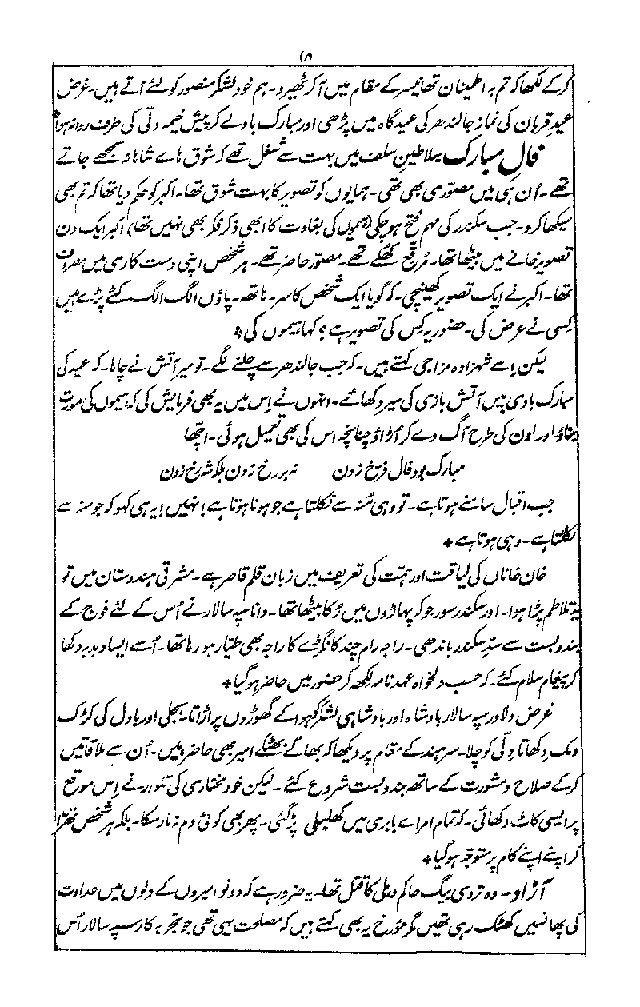 ۱۵
کرکے لکھا کہ تم بہ اطمینان تھانیسر کے مقام میں آکر ٹھیرو۔ ہم خود لشکر منصور کو لئے آتے ہیں۔ غرض
عید قربان کی نماز جالندھر کی عیدگاہ میں پڑھی اور مبارک باد لے کر پیش خیمہ دلّی کی طرف روانہ ہوا
فال مبارک۔ سلاطین سلف میں بہت سے شغل تھے کہ شوق ہاے شاہانہ سمجھے جاتے
تھے۔ اُن ہی میں مصوّری بھی تھی۔ ہمایوں کو تصویر کا بہت شوق تھا۔ اکبر کو حکم دیا تھا کہ تم بھی
سیکھا کرو۔ جب سکندر کی مہم فتح ہوچکی (ہیموں کی بغاوت کا ابھی ذکر فکر بھی نہیں تھا) اکبر ایک دن
تصویر خانے میں بیٹھا تھا۔ مُرقع کھلے تھے۔ مصوّر حاضر تھے۔ ہر شخص اپنی دست کاری میں مصروف
تھا۔ اکبر نے ایک تصویر کھینچی۔ کہ گویا ایک شخص کا سر۔ ہاتھ۔ پاؤں الگ الگ کٹے پڑے ہیں
کسی نے عرض کی۔ حضور یہ کس کی تصویر ہے؟ کہا ہیموں کی *
لیکن اسے شہزادہ مزاجی کہتے ہیں۔ کہ جب جالندھر سے چلنے لگے۔ تو میر آتش نے چاہا۔ کہ عید کی
مبارک بادی میں آتش بازی کی سیر دکھائے۔ انہوں نے اس میں یہ بھی فرمایش کی کہ ہیموں کی مورت
بناؤ اور راون کی طرح آگ دے کر اُڑاؤ چنانچہ اس کی بھی تعمیل ہوئی۔ اچھا
مبارک بود فال فرخ زدن نہ بر رخ زدن بلکہ شہ رخ زدن
جب اقبال سامنے ہوتا ہے۔ تو وہی مُنہ سے نکلتا ہے جو ہونا ہوتا ہے! نہیں! یہی کہو کہ جو منہ سے
نکلتا ہے۔ وہی ہوتا ہے *
خان خاناں کی لیاقت اور ہمّت کی تعریف میں زبانِ قلم قاصر ہے۔ مشرقی ہندوستان میں تو
یہ تلاطم پڑا ہوا۔ اور سکندر سور جو کہ پہاڑوں میں رُکا بیٹھا تھا۔ دانا سپہ سالار نے اُس کے لئے فوج کے
بندوبست سے سدِّ سکندر باندھی۔ راجہ رام چند کانگڑے کا راجہ بھی طیّار ہو رہا تھا۔ اُسے ایسا دبدبہ دکھا
کر پیغام سلام کئے۔ کہ حسب دلخواہ عہد نامہ لکھ کر حضور میں حاضر ہوگیا *
غرض دلاور سپہ سالار بادشاہ اور بادشاہی لشکر کو ہوا کے گھوڑوں پر اُڑاتا۔ بجلی اور بادل کی کڑک
دمک دکھاتا دلّی کو چلا۔ سرہند کے مقام پر دیکھا کہ بھاگے بھٹکے امیر بھی حاضر ہیں۔ اُن سے ملاقاتیں
کرکے صلاح و مشورت کے ساتھ بندوبست شروع کئے۔ لیکن خود مختاری کی تلوار نے اِس موقع
پر ایسی کاٹ دکھائی۔ کہ تمام امراے بابری میں کھلبلی پڑگئی۔ پھر بھی کوئی دم نہ مار سکا۔ بلکہ ہر شخص تھرّا
کر اپنے اپنے کام پر متوجہ ہوگیا *
آزاد۔ وہ تردی بیگ حاکم دہلی کا قتل تھا۔ یہ ضرور ہے کہ دونو امیروں کے دلوں میں عداوت
کی پھانسیں کھٹک رہی تھیں مگر مؤرخ یہ بھی کہتے ہیں کہ مصلحت یہی تھی جو تجربہ کار سپہ سالار اُس